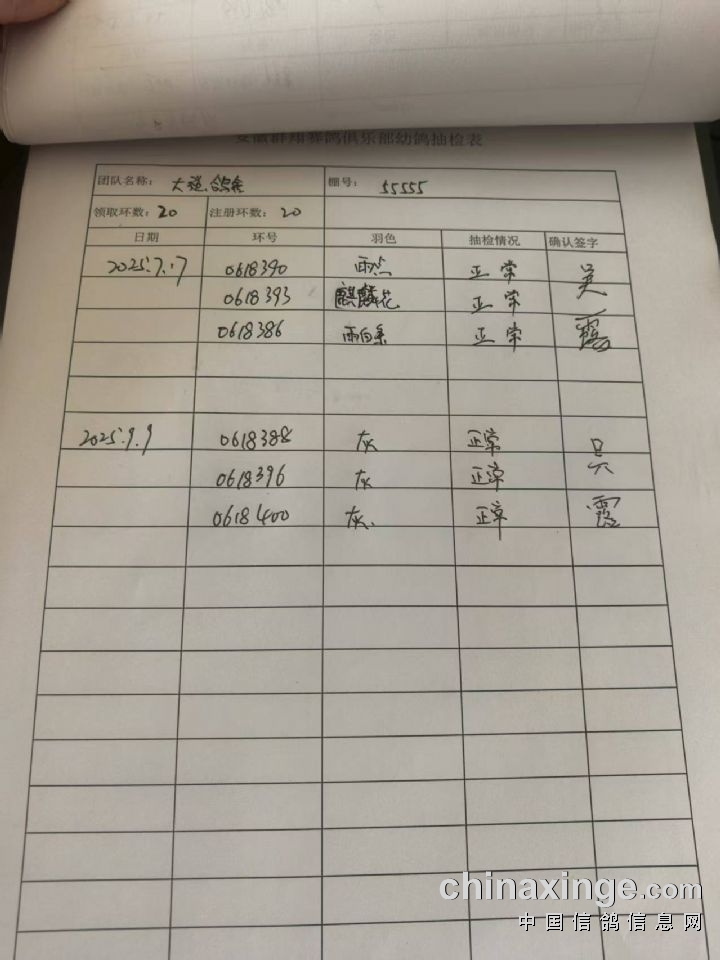 安徽群翔赛鸽俱乐部幼鸽抽检表
团队名称： 鸽舍 棚号： 55555
领取环数：20 注册环数：20
日期 环号 羽色 抽检情况 确认签字
2025.7.17 0618390 雨点 正常 吴
0618393 麒麟花 正常
0618386 雨白条 正常 霞
2025.9.9 0618388 灰 正常 吴
0618396 灰 正常
0618400 灰 正常 霞
chinaxinge.com
中国信鸽信息网